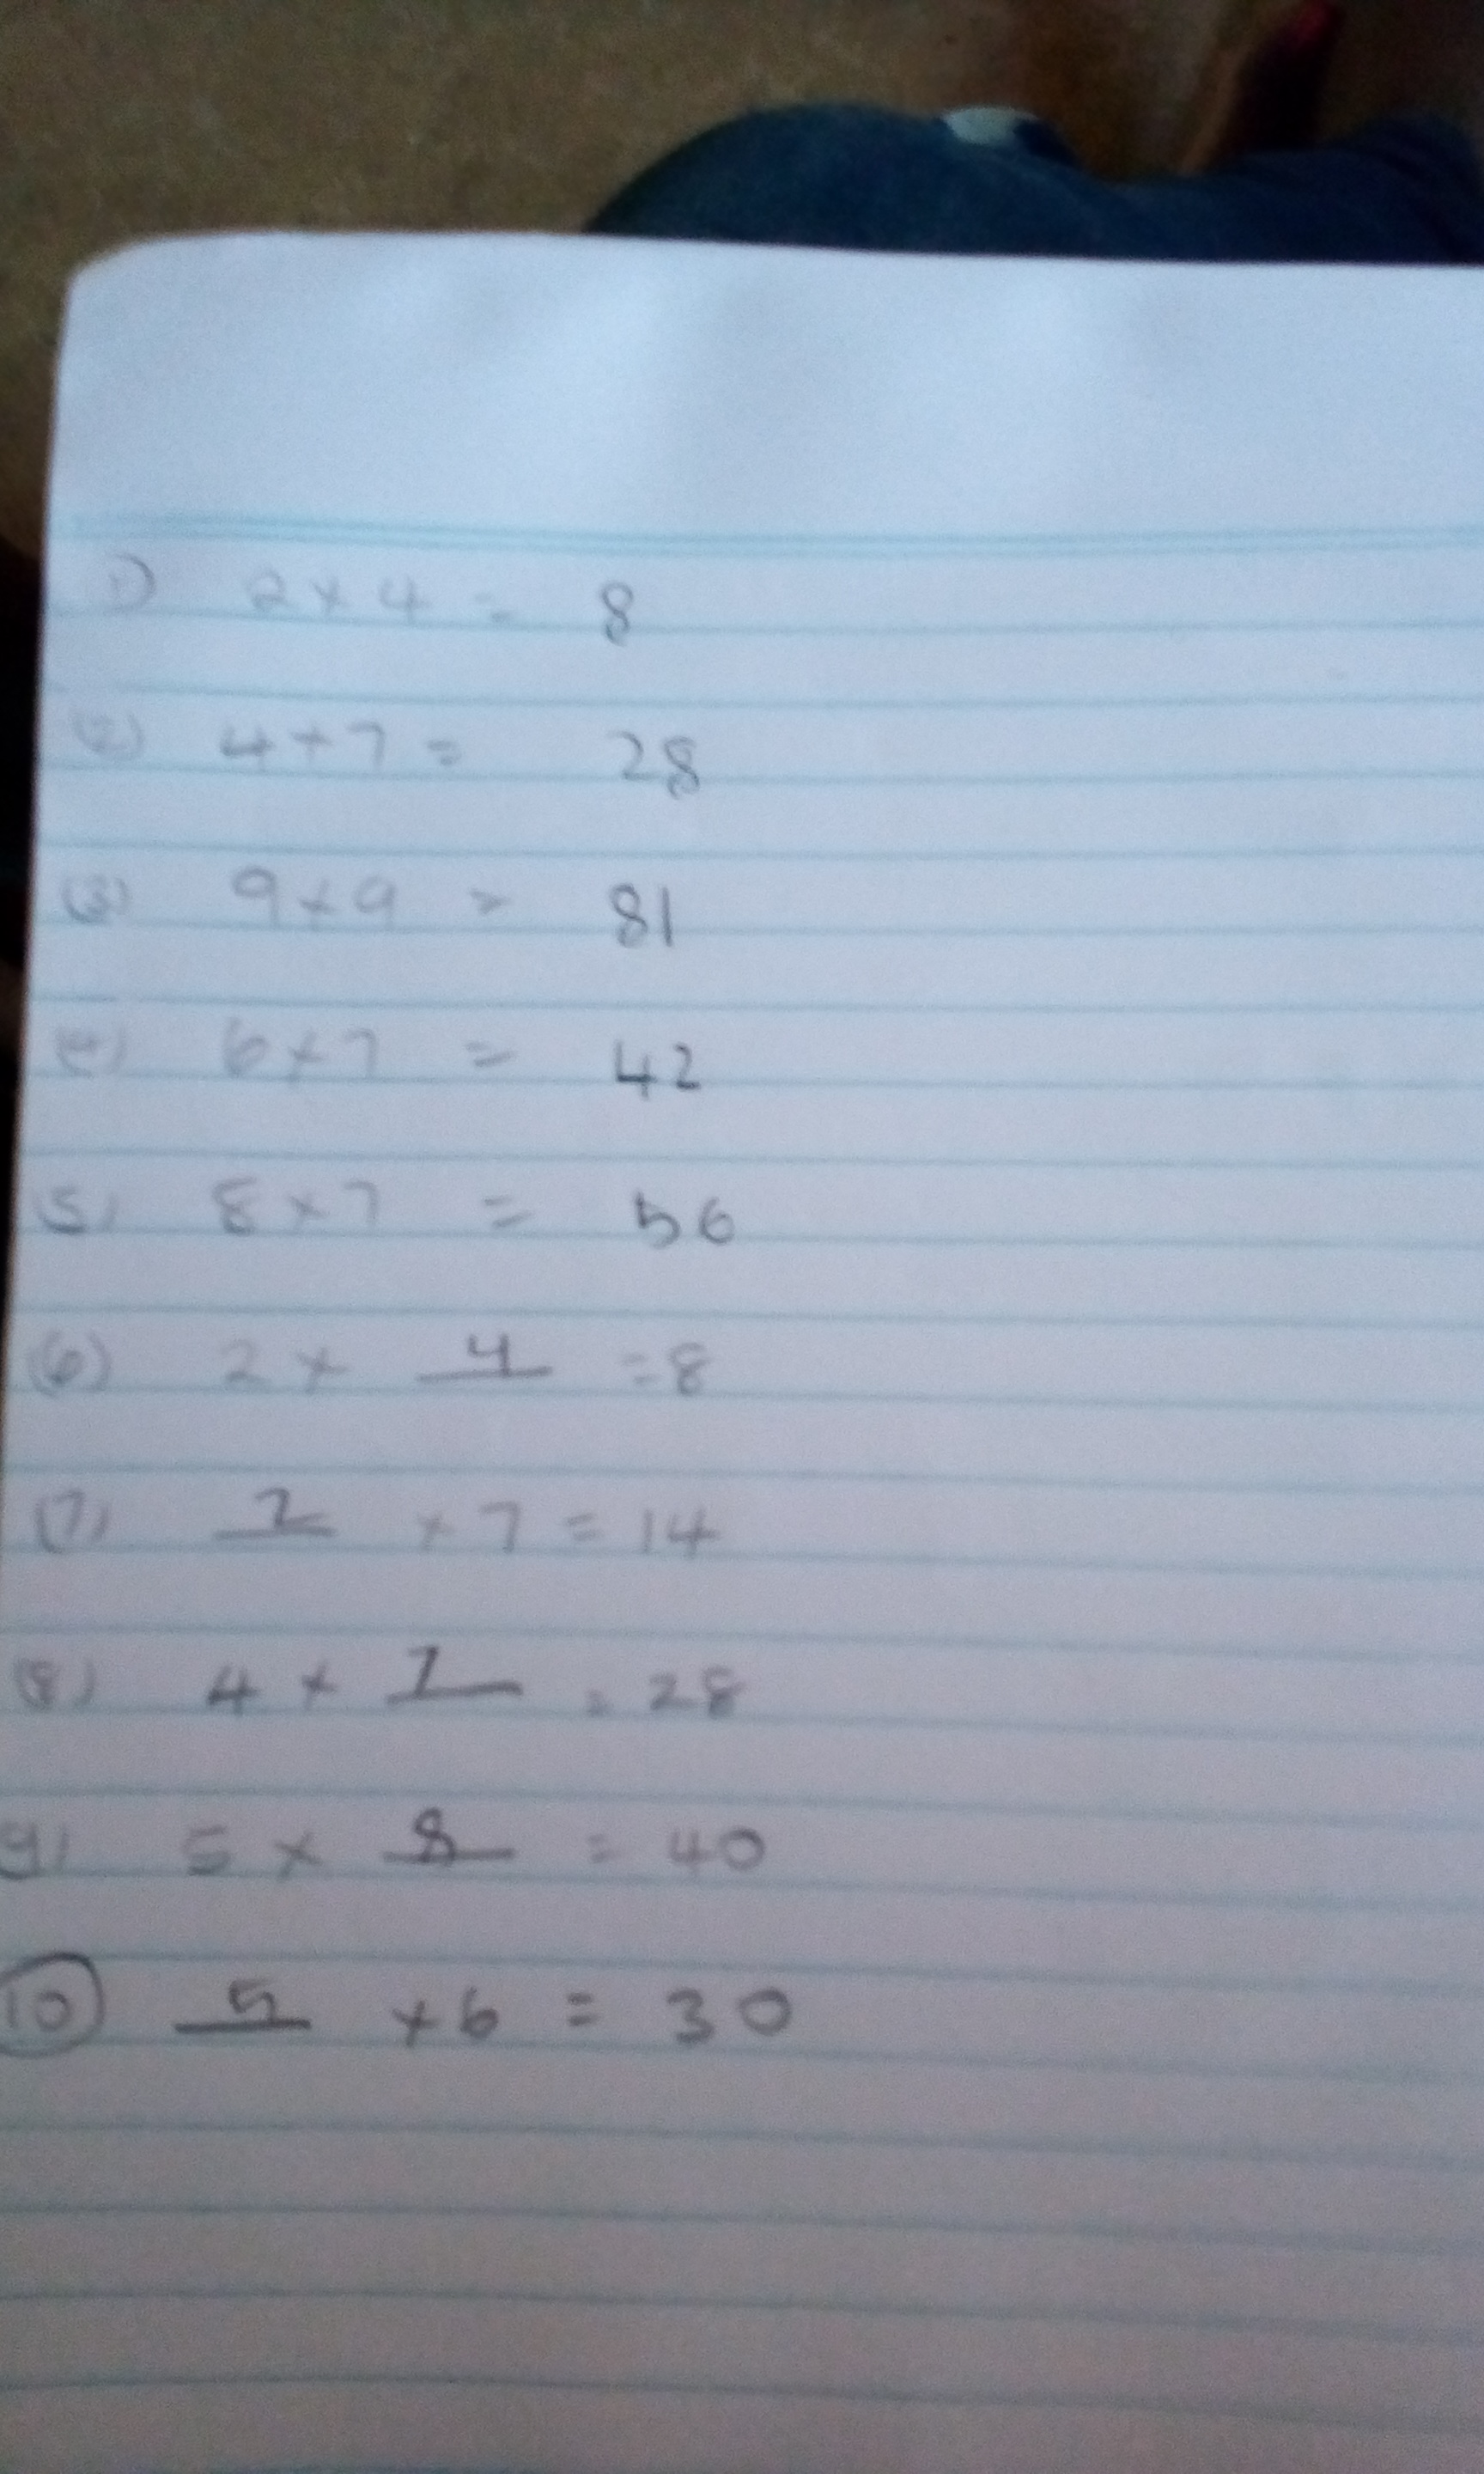 1) 2 x 4 = 8
(2) 4 + 7 = 28
(3) 9 x 9 = 81
(4) 6 x 7 = 42
5) 8 x 7 = 56
(6) 2 x 4 = 8
(7) 2 x 7 = 14
(8) 4 x 7 = 28
9) 5 x 8 = 40
10) 5 x 6 = 30